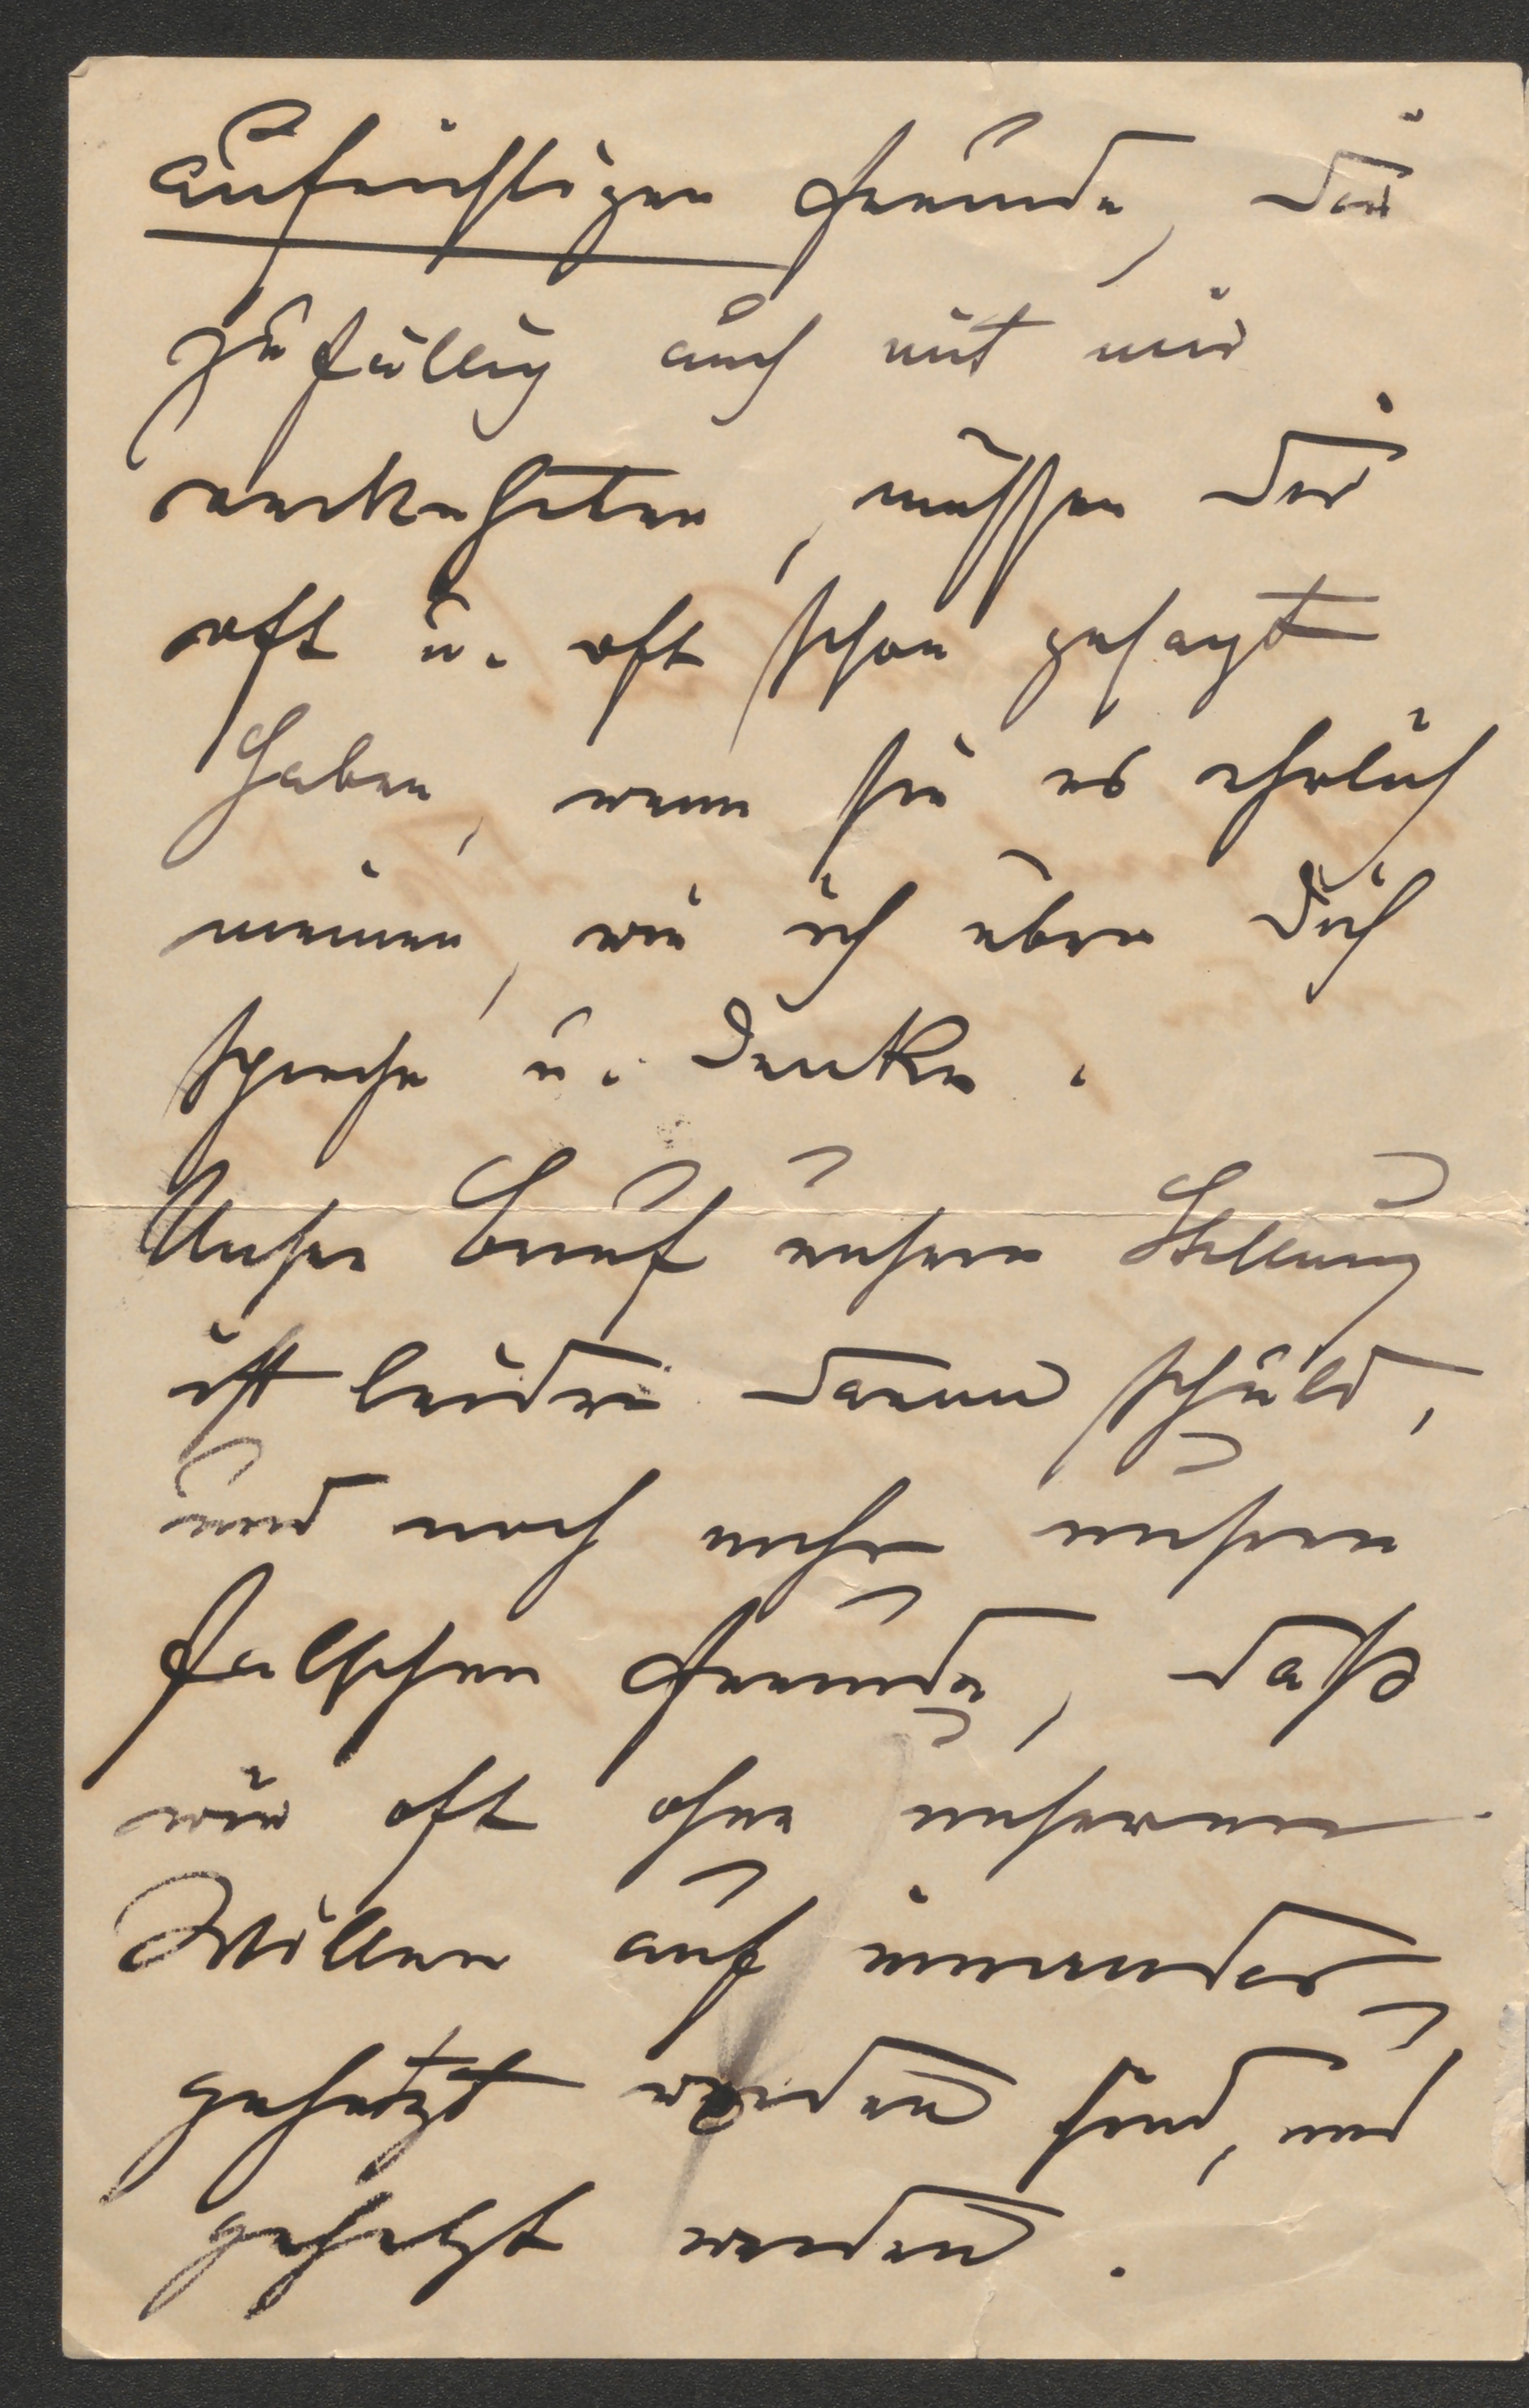 aufrichtigen Freunde, die
zufällig auch mit mir
verkehrten, müssen Dir
oft u. oft schon gesagt
haben, wenn sie es ehrlich
meinen, wie ich über Dich
spreche u. denke.
Unser Beruf unsere Stellung
ist leider daran schuld,
und noch mehr unsere
falschen Freunde, daß
wir oft ohne unseren
Willen auf einander
gehetzt worden sind, und
gehetzt werden.